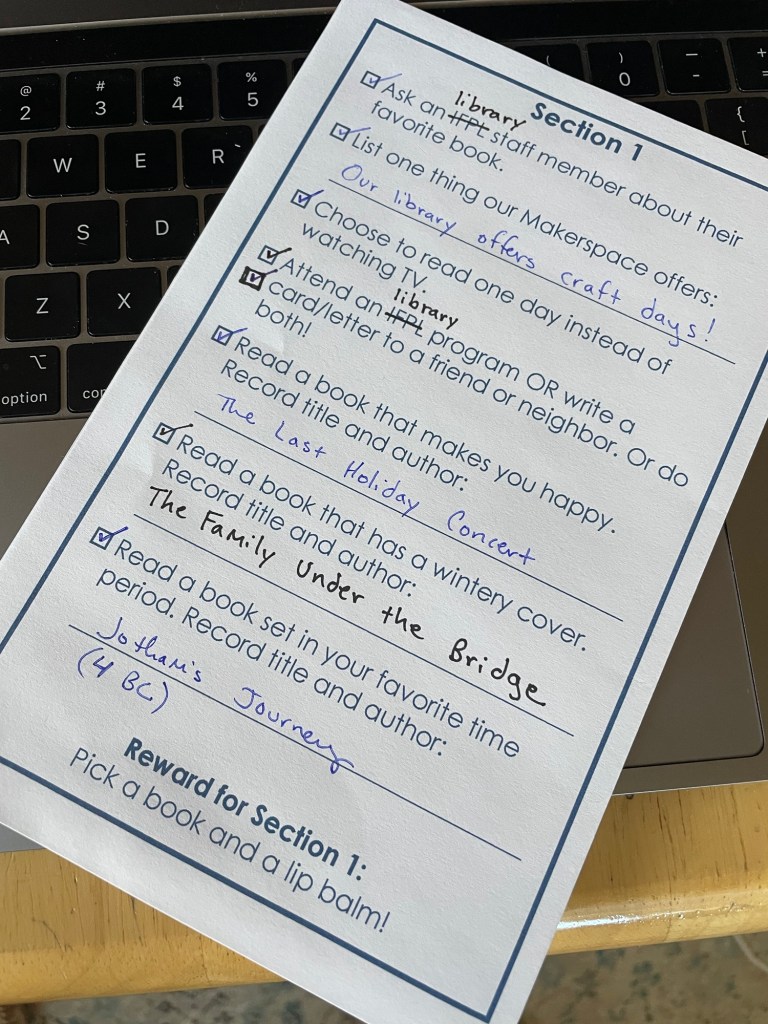 @ # $ % ( ) — +
2 3 4 5 0 - =
W E R {
[
A S D
Z X
⌥
option
Section 1
library
Ask an IFPL staff member about their
favorite book.
List one thing our Makerspace offers:
Our library offers craft days!
Choose to read one day instead of
watching TV.
library
Attend an IFPL program OR write a
card/letter to a friend or neighbor. Or do
both!
Read a book that makes you happy.
Record title and author:
The Last Holiday Concert
Read a book that has a wintery cover.
Record title and author:
The Family Under the Bridge
Read a book set in your favorite time
period. Record title and author:
Jotham's Journey
(4 BC)
Reward for Section 1:
Pick a book and a lip balm!